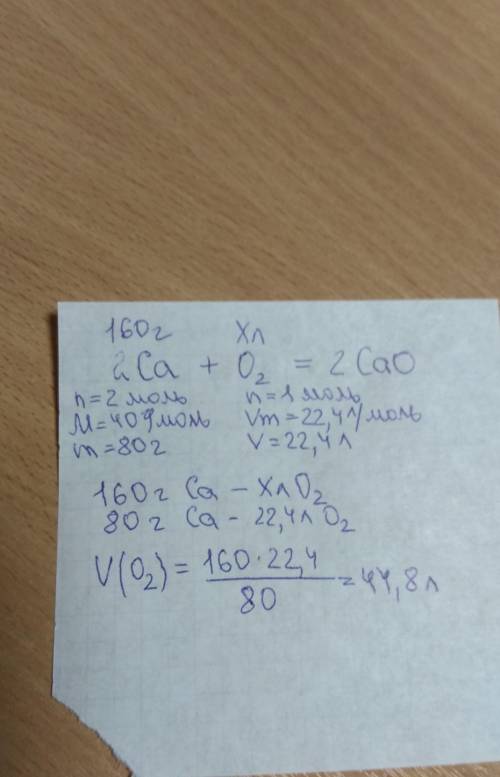 160г Xл
2Ca + O₂ = 2CaO
n=2 моль n=1 моль
M=40г/моль Vm=22,4л/моль
m=80г V=22,4л
160г Ca – Xл O₂
80г Ca – 22,4л O₂
V(O₂) = 160·22,4 / 80 = 44,8л